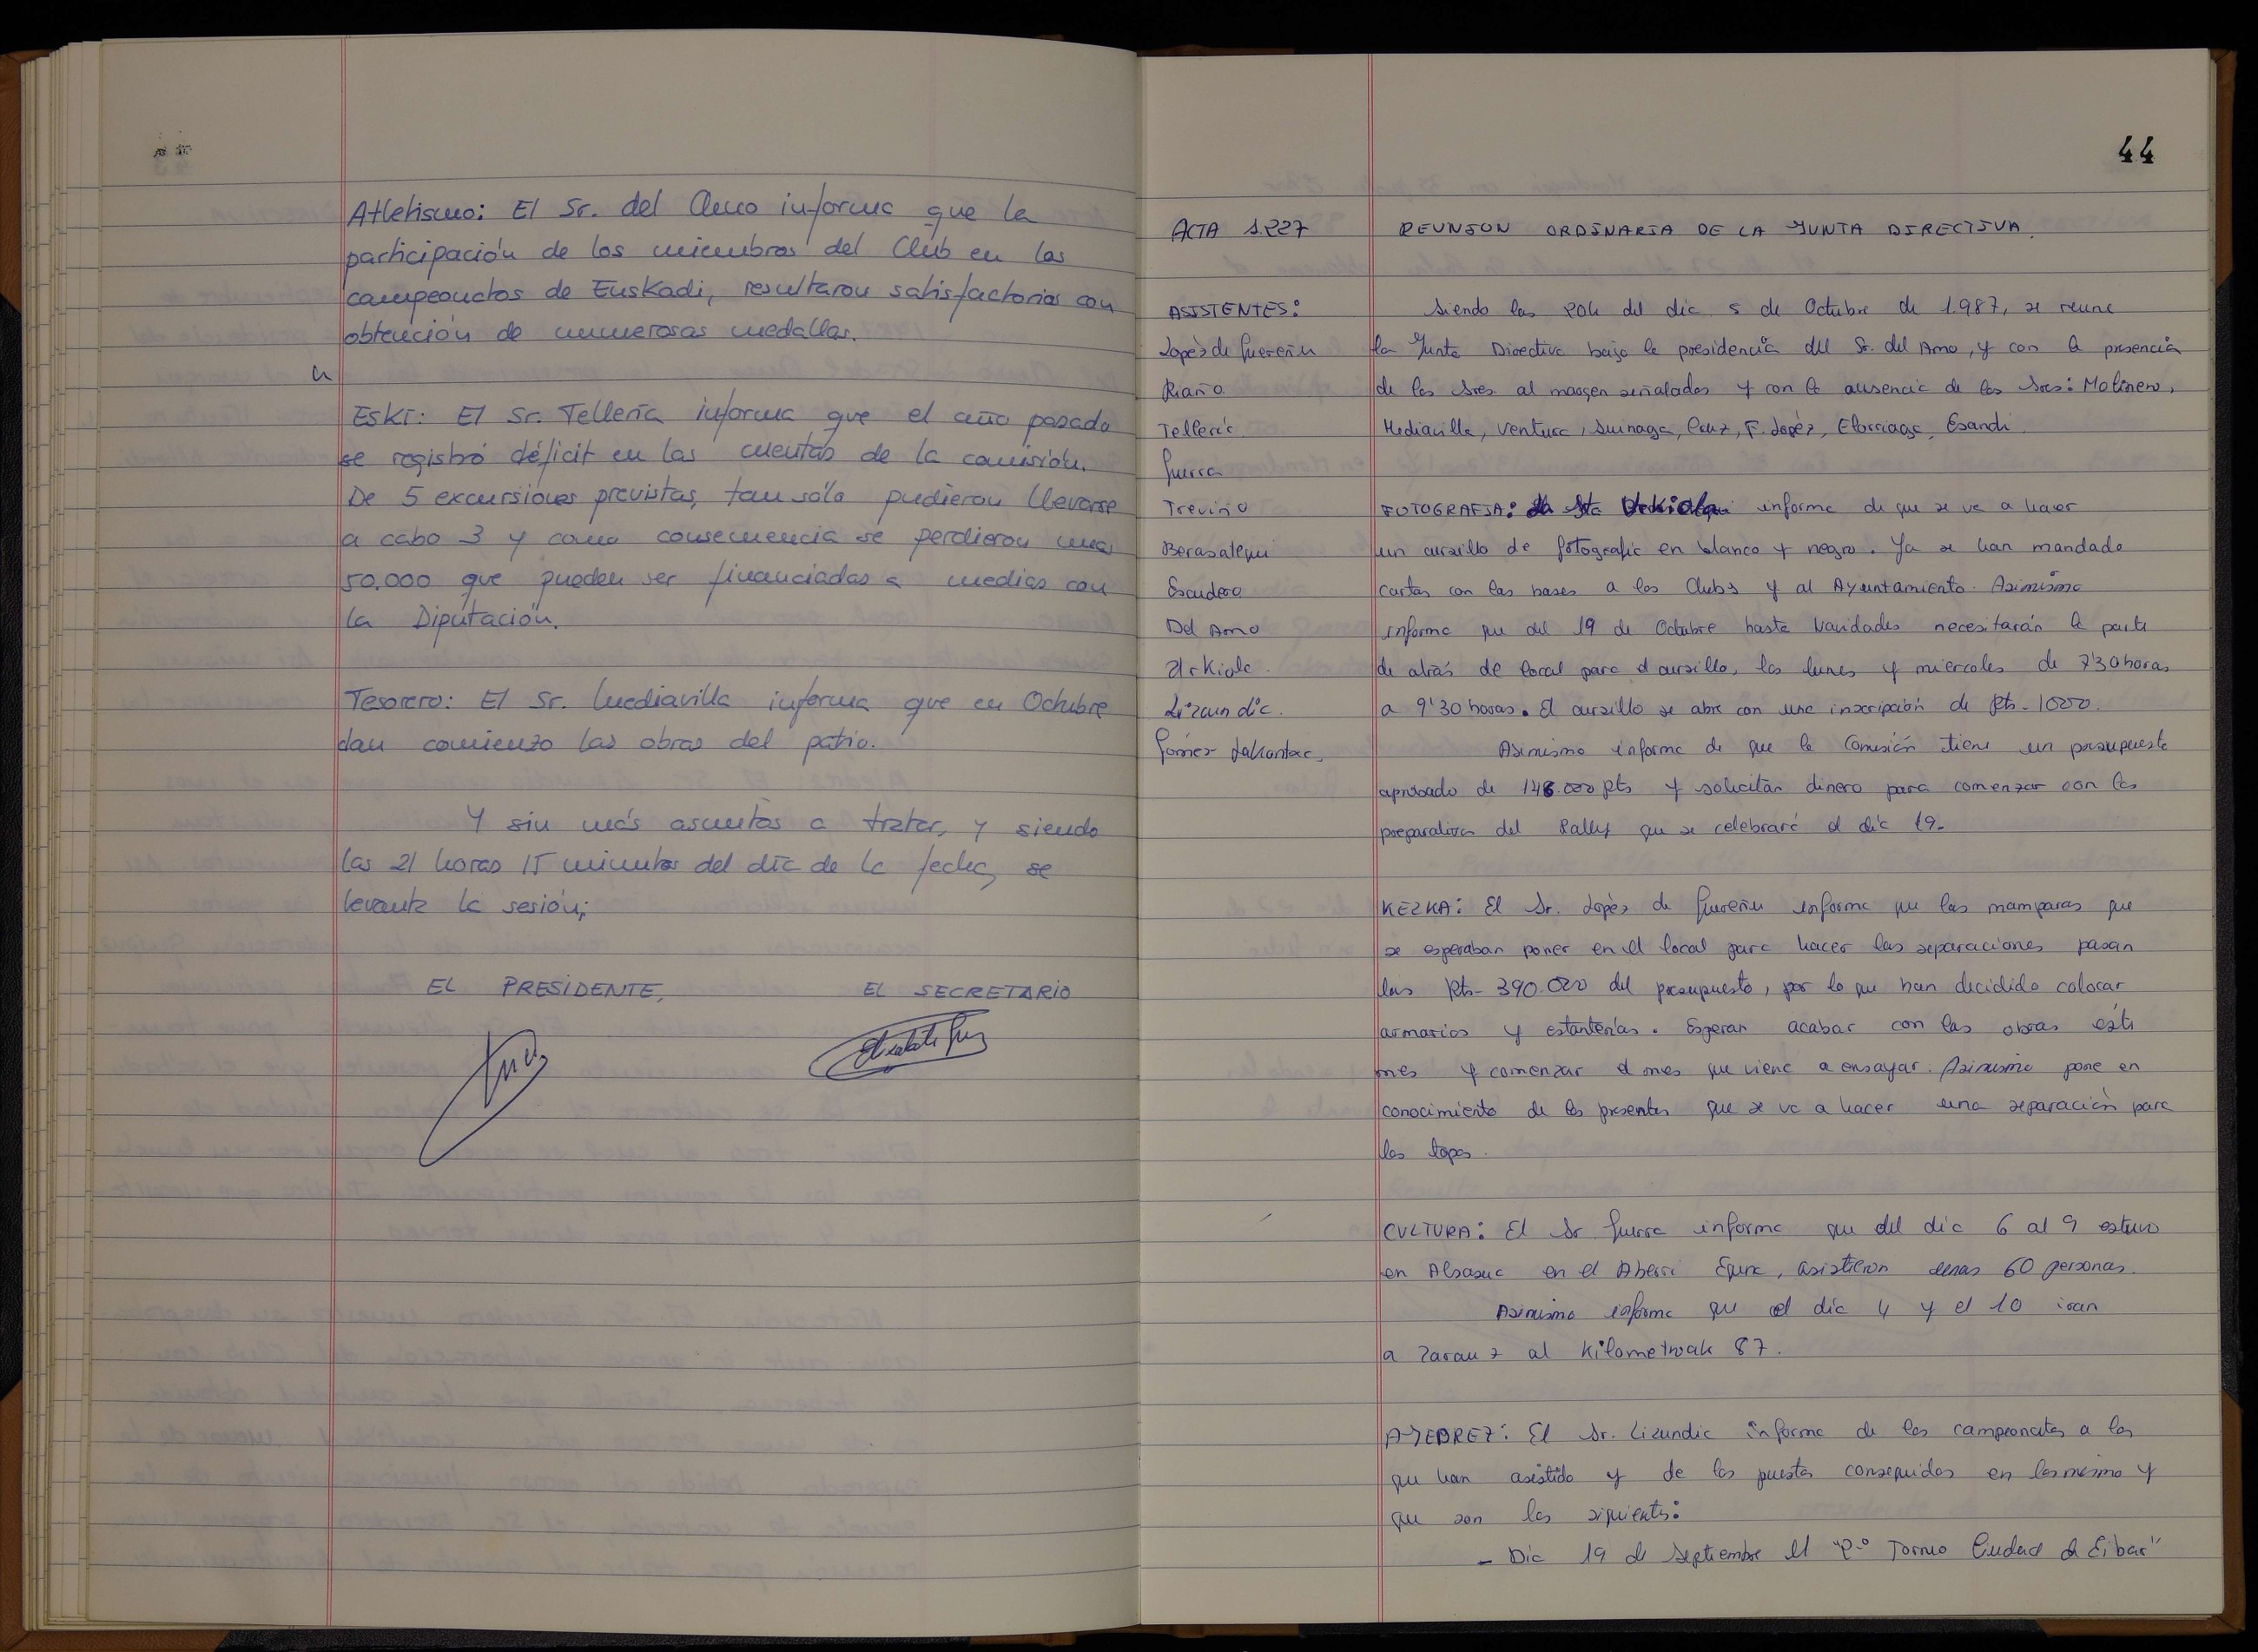 Atletismo: El Sr. del Amo informa que la
participación de los miembros del Club en los
campeonatos de Euskadi, resultaron satisfactorios con
obtención de numerosas medallas.
Eski: El Sr. Tellería informa que el año pasado
se registró déficit en las cuentas de la comisión.
De 5 excursiones previstas, tan sólo pudieron llevarse
a cabo 3 y como consecuencia se perdieron unas
50.000 que pueden ser financiadas a medias con
la Diputación.
Tesorero: El Sr. Mediavilla informa que en Octubre
dan comienzo las obras del patio.
Y sin más asuntos a tratar, y siendo
las 21 horas 15 minutos del día de la fecha, se
levanta la sesión;
EL PRESIDENTE, EL SECRETARIO
44
ACTA 1.227 REUNION ORDINARIA DE LA JUNTA DIRECTIVA.
ASISTENTES:
Lopez de Guereñu
Riaño
Tellería
Guerra
Treviño
Berasategui
Escudero
Del Amo
Urkiola.
Lizundia.
Gómez Lahontac.
Siendo las 20h del dia 5 de Octubre de 1.987, se reune
la Junta Directiva bajo la presidencia del Sr. del Amo, y con la presencia
de los Sres al margen señalados y con la ausencia de los Sres: Molinero,
Mediavilla, Ventura, Suinaga, Cruz, F. López, Elorriaga, Esandi.
FOTOGRAFIA: La Sta Urkiola informa de que se va a hacer
un cursillo de fotografia en blanco y negro. Ya se han mandado
cartas con las bases a los Clubs y al Ayuntamiento. Asimismo
informa que del 19 de Octubre hasta Navidades necesitarán la parte
de atrás de local para el cursillo, los lunes y miercoles de 7'30 horas
a 9'30 horas. El cursillo se abre con una inscripción de Pts- 1000.
Asimismo informa de que la Comisión tiene un presupuesto
aprobado de 148.000 pts y solicitan dinero para comenzar con los
preparativos del Rally que se celebrará el día 19.
KEZKA: El Sr. Lopez de Guereñu informa que las mamparas que
se esperaban poner en el local para hacer las separaciones pasan
las Pts- 390.000 del presupuesto, por lo que han decidido colocar
armarios y estanterías. Esperan acabar con las obras este
mes y comenzar el mes que viene a ensayar. Asimismo pone en
conocimiento de los presentes que se va a hacer una separación para
los topes.
CULTURA: El Sr Guerra informa que del dia 6 al 9 estuvo
en Alsasua en el Aberri Eguna, asistieron unas 60 personas.
Asimismo informa que el dia 4 y el 10 iran
a Zarauz al Kilometroak 87.
AJEDREZ: El Sr. Lizundia informa de los campeonatos a los
que han asistido y de los puestos conseguidos en los mismo y
que son los siguientes:
- Dia 19 de Septiembre el "2º Torneo Ciudad de Eibar"